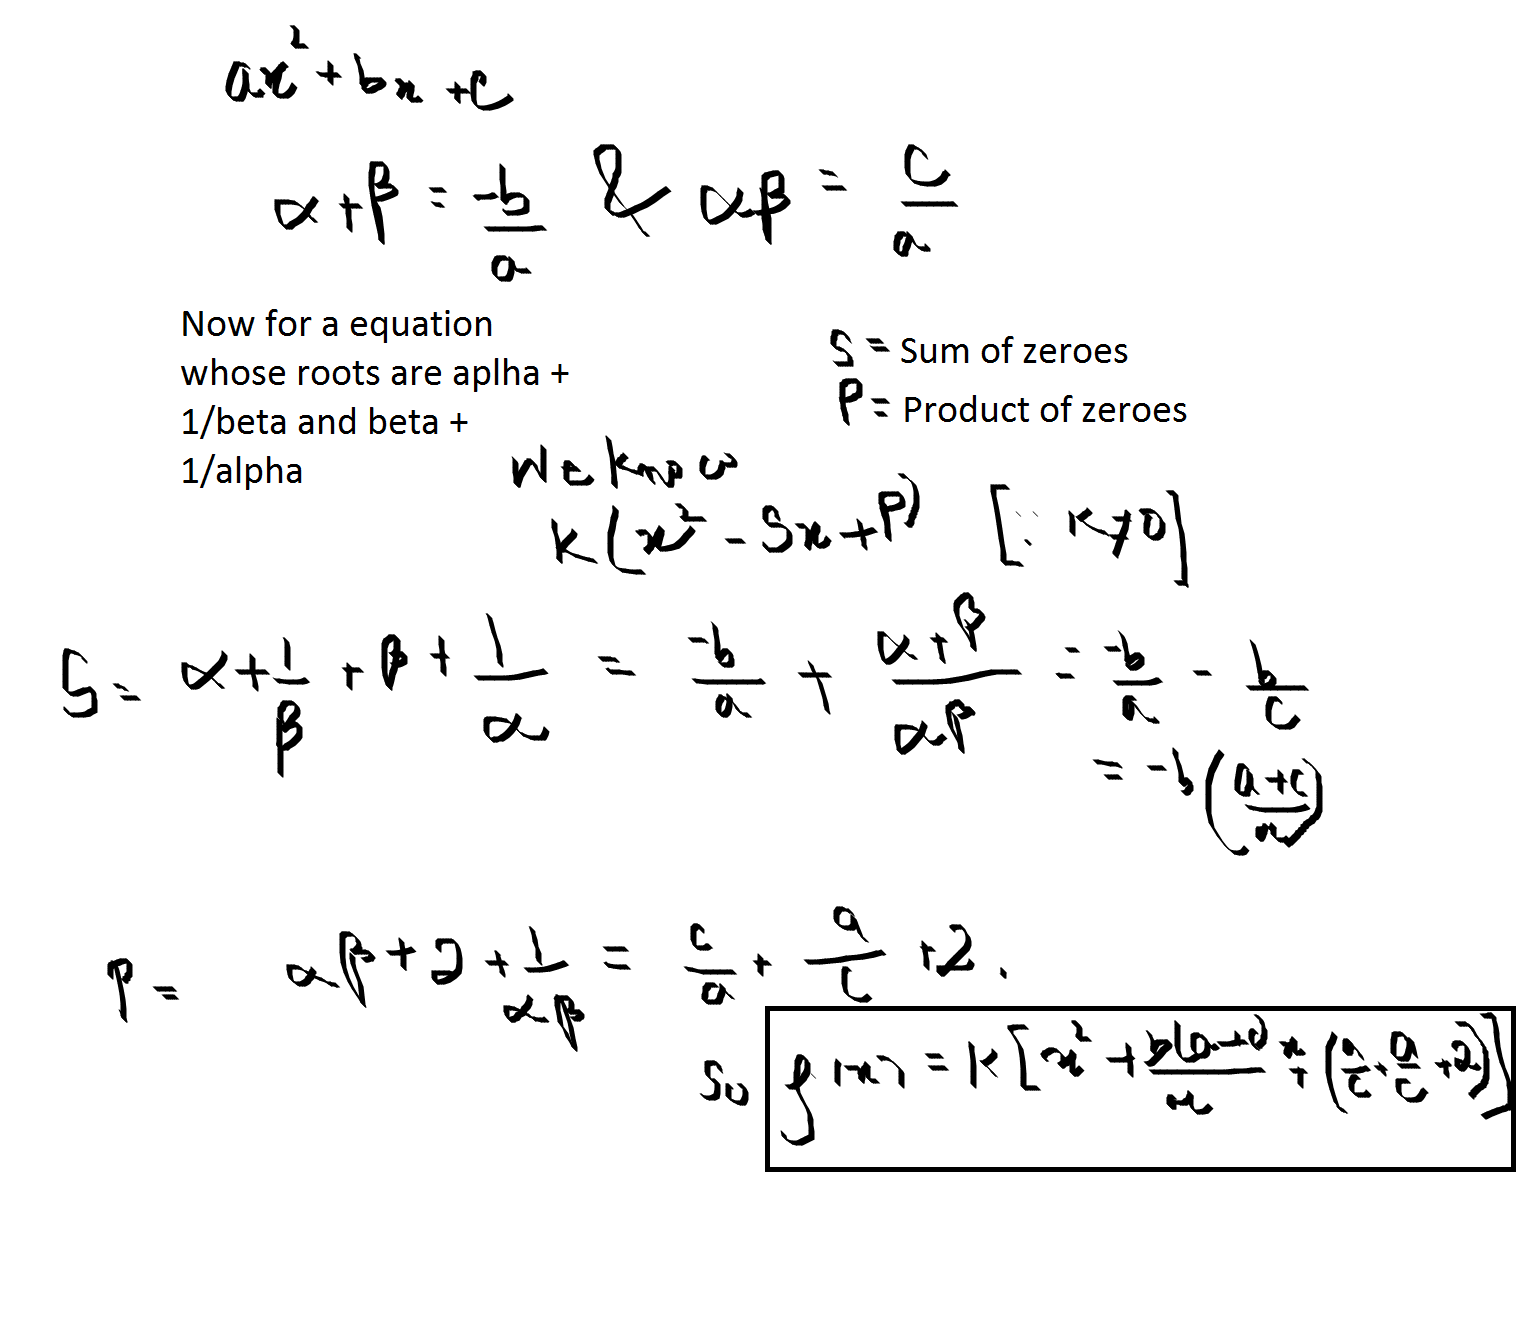 ax² + bx + c
α + β = -b/a & αβ = c/a
Now for a equation
whose roots are aplha +
1/beta and beta +
1/alpha
S = Sum of zeroes
P = Product of zeroes
We know
K(x² - Sx + P) [∵ K≠0]
S = α + 1/β + β + 1/α = -b/a + (α+β)/αβ = -b/a - b/c
= -b(
a+c
)
P = αβ + 2 + 1/αβ = c/a + a/c + 2.
So f(x) = K[x² + b(a+c)
x + (
a/c + 2)]